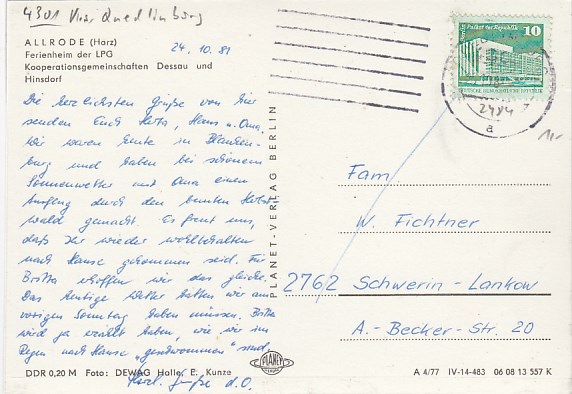 4301 Krs. Quedlinburg
ALLRODE (Harz)
Ferienheim der LPG
Kooperationsgemeinschaften Dessau und
Hinsdorf
24.10.81
Die herzlichsten Grüße von hier
senden Euch Herta, Hans u. Oma.
Wir waren heute in Blanken-
burg und haben bei schönem
Sonnenwetter mit Oma einen
Ausflug durch den bunten Herbst-
wald gemacht. Es freut uns,
daß Ihr wieder wohlbehalten
nach Hause gekommen seid. Für
Britta erhoffen wir das gleiche.
Das heutige Wetter hätten wir am
vorigen Sonntag haben müssen. Britta
wird ja erzählt haben, wie wir im
Regen nach Hause "geschwommen" sind.
Herzl. Grüße d. O.
DDR 0,20 M Foto: DEWAG Halle, E. Kunze
PLANET-VERLAG BERLIN
PLANET
Palast der Republik 10
2404
a
Fam.
W. Fichtner
2762 Schwerin-Lankow
A.-Becker-Str. 20
A 4/77 IV-14-483 06 08 13 557 K